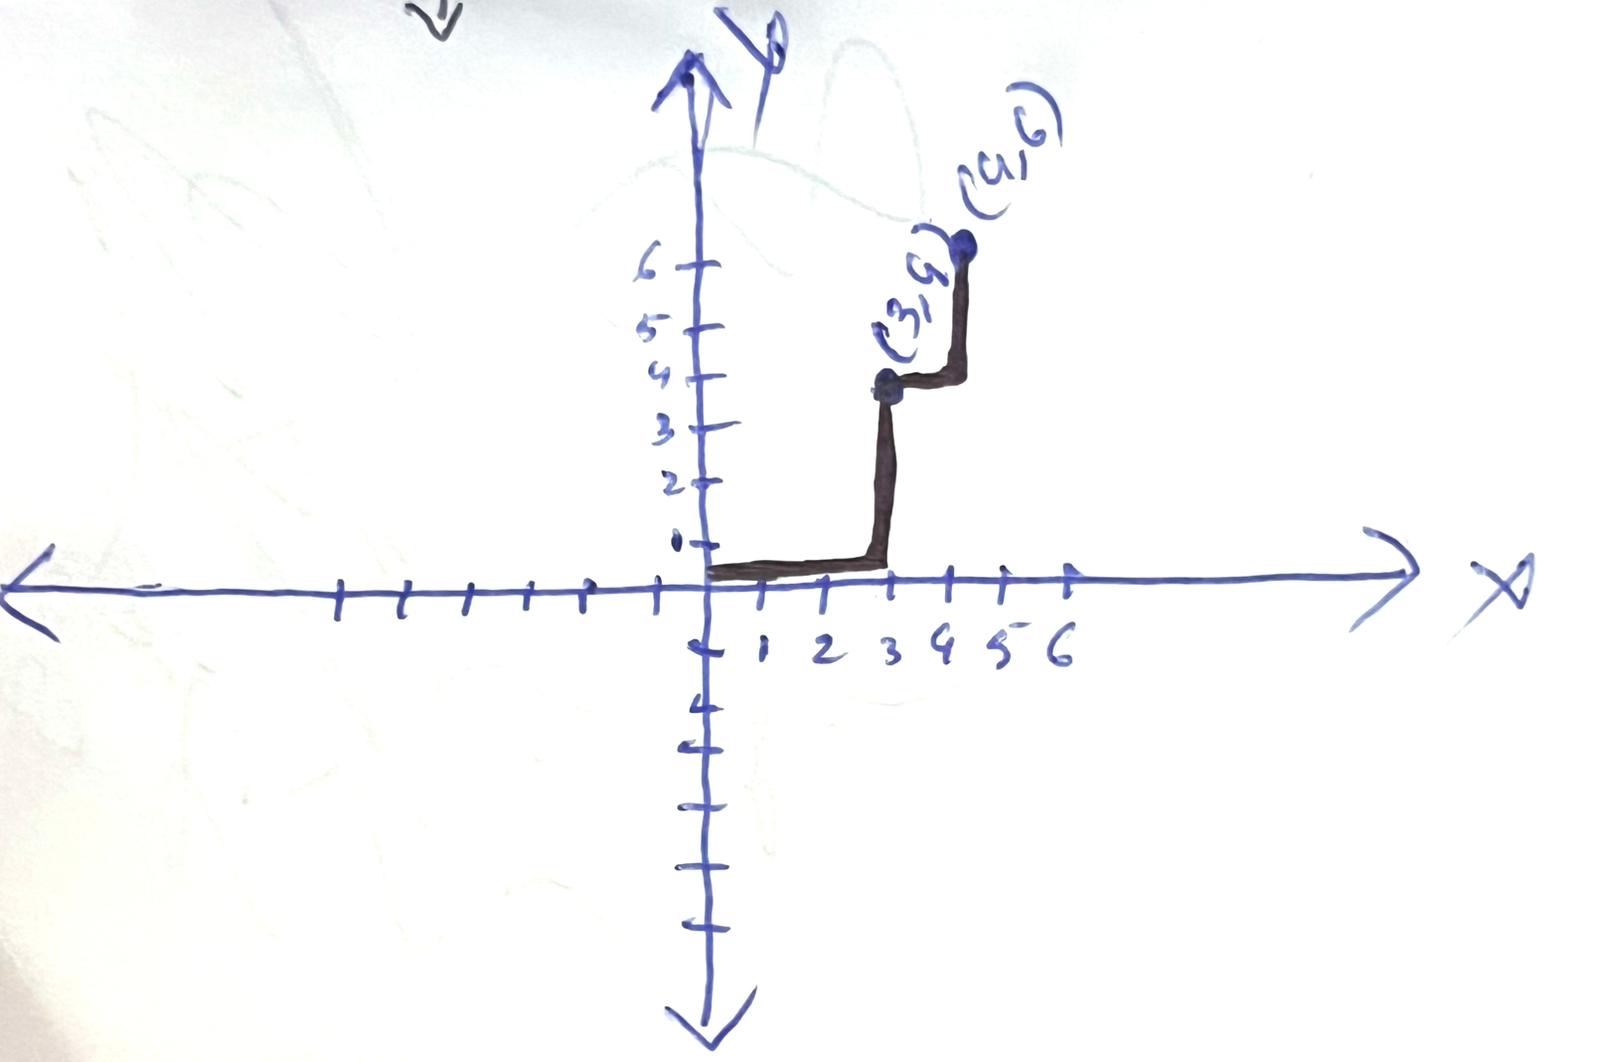 y
(4,6)
(3,4)
6
5
4
3
2
1
1 2 3 4 5 6
x